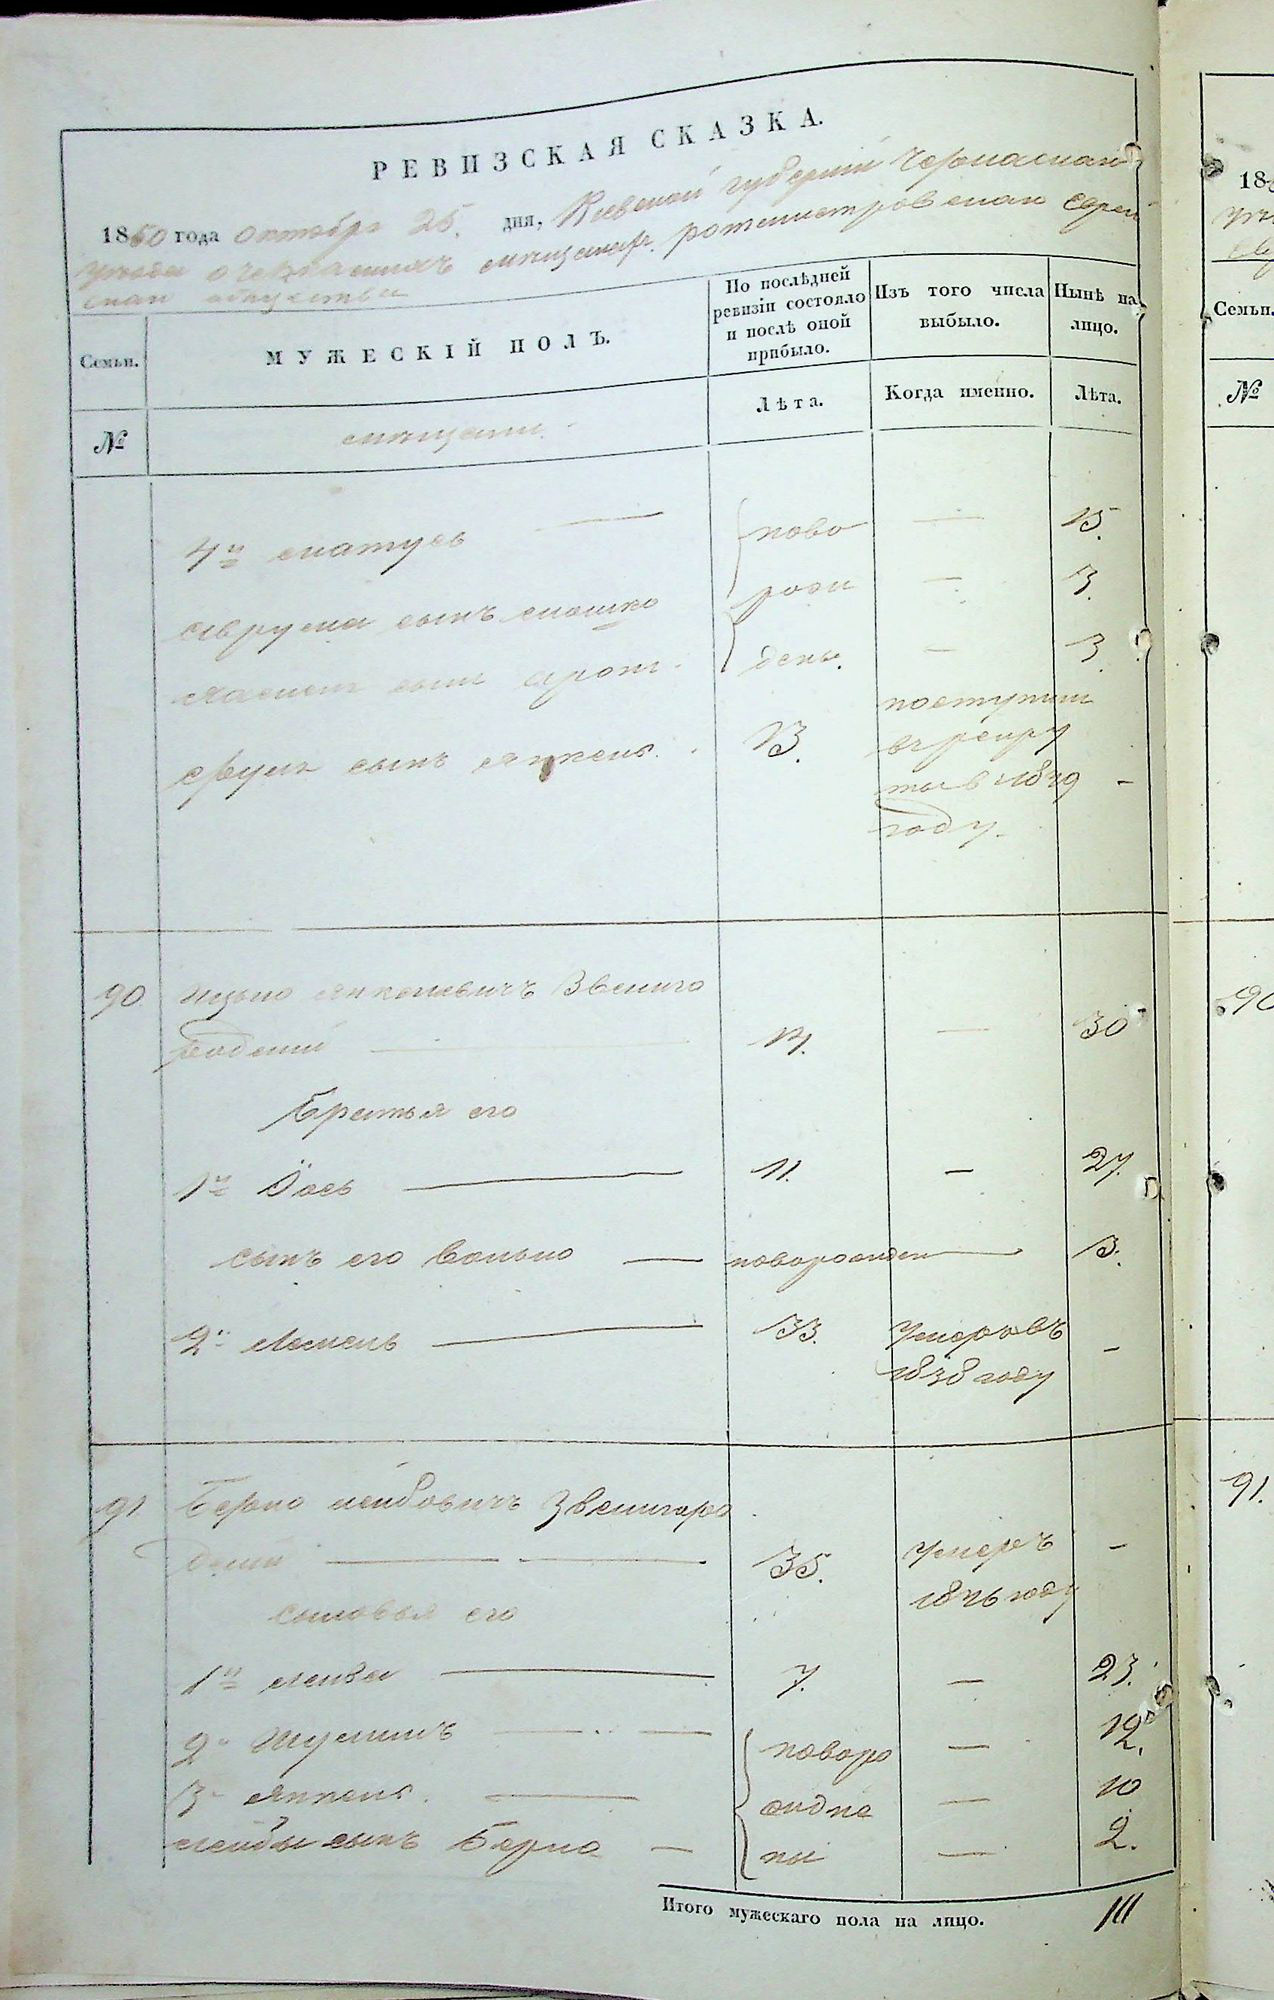 РЕВИЗСКАЯ СКАЗКА.
1850 года октября 25. дня, Киевской губернии Черкаскаго
уезда о мещанах ротмистровскаго еврей
скаго общества
Семьи.
МУЖЕСКІЙ ПОЛЪ.
По послѣдней ревизіи состояло и послѣ оной прибыло.
Изъ того числа выбыло.
Нынѣ на лицо.
№
мещане.
Лѣта.
Когда именно.
Лѣта.
4й Матусь — ново — 15.
Аврума сынъ Мошко рож — 3.
сынъ Арон дены. — 3.
сынъ Янкель. 13. поступил
в рекру
ты в 1849 —
году.
90 Ицко Янкелевичъ Звениго
родский — 14. — 30
Братья его
1й Иось — 11. — 27.
сынъ его Волько — новорожден — 3.
2й Лемель — 13. Умеръ въ —
1838 году
91 Берко Лейбовичъ Звенигоро
дский — 35. Умеръ —
1846 году
сыновья его
1й Лейба — 7. — 23.
2й Шулимъ — новоро — 12.
3й Янкель. — жд — 10
Лейбы сынъ Берко — ны — 2.
Итого мужескаго пола на лицо. 111
18
Семьи.
№
90
91.